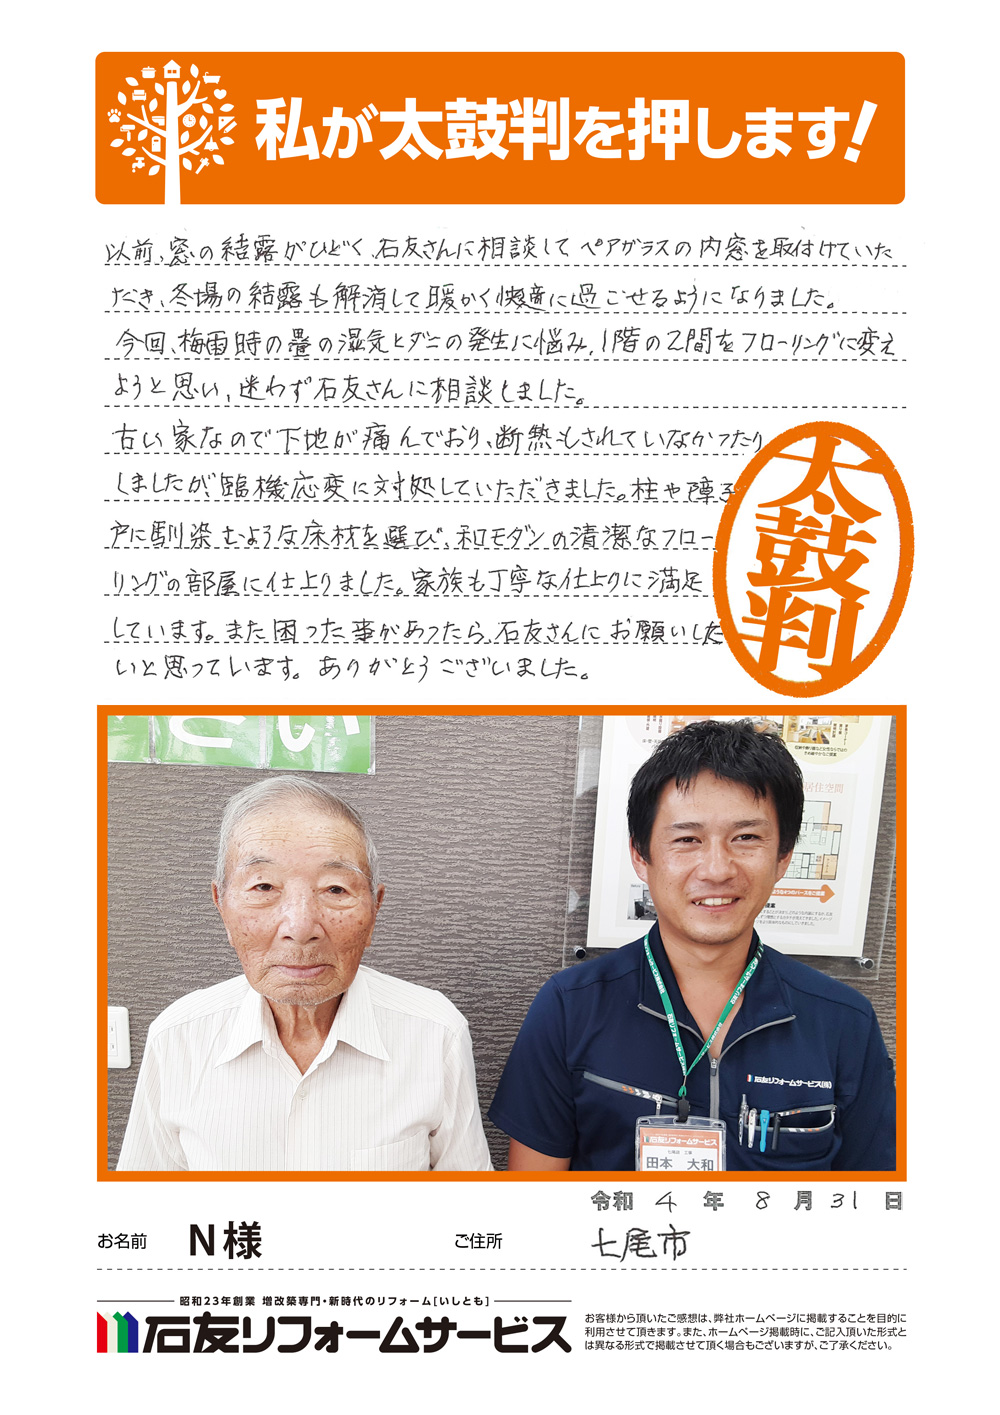 私が太鼓判を押します!
以前、窓の結露がひどく、石友さんに相談して ペアガラスの内窓を取付けていた
だき、冬場の結露も解消して暖かく快適に過ごせるようになりました。
今回、梅雨時の畳の湿気とダニの発生に悩み、1階の2間をフローリングに変え
ようと思い、迷わず石友さんに相談しました。
古い家なので下地が痛んでおり、断熱もされていなかったり
しましたが、臨機応変に対処していただきました。柱や障子
戸に馴染むような床材を選び、和モダンの清潔なフロー
リングの部屋に仕上りました。家族も丁寧な仕上りに満足
しています。また困った事があったら、石友さんにお願いした
いと思っています。ありがとうございました。
太鼓判
さい
居住空間
石友リフォームサービス(株)
石友リフォームサービス
七尾店 工事
田本 大和
令和 4 年 8 月 31 日
お名前 N様 ご住所 七尾市
昭和23年創業 増改築専門・新時代のリフォーム[いしとも]
石友リフォームサービス
お客様から頂いたご感想は、弊社ホームページに掲載することを目的に
利用させて頂きます。また、ホームページ掲載時に、ご記入頂いた形式と
は異なる形式で掲載させて頂く場合もございますが、ご了承ください。